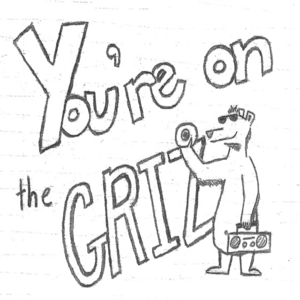 You're on
the
GRIZ